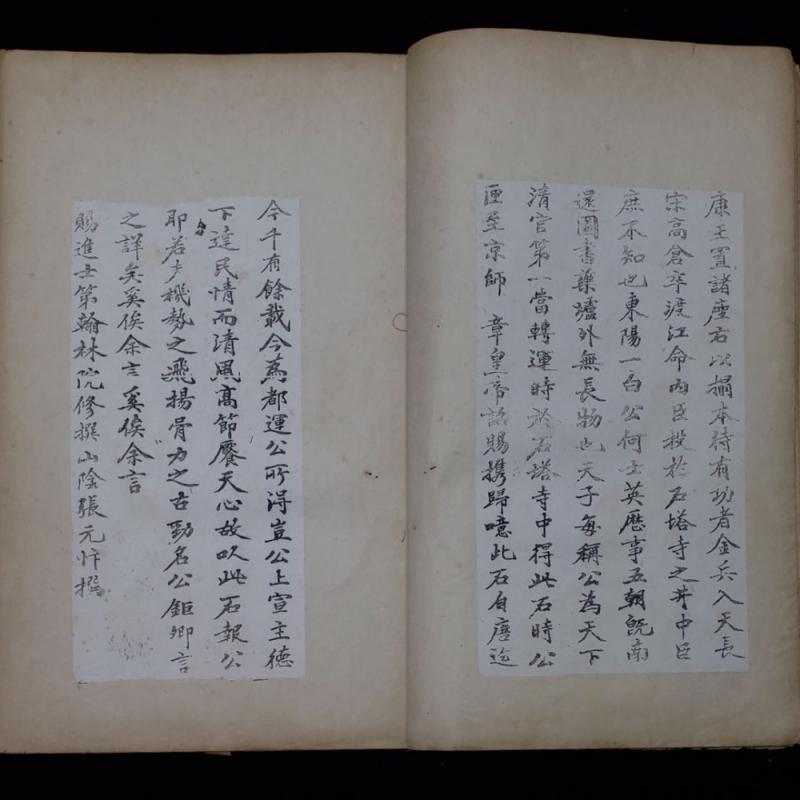 康王置諸座右以搨本待有功者金兵入天長
宋高倉卒渡江命內臣投於石塔寺之井中臣
庶不知也東陽一白公何士英歷事五朝旣南
還圖書藥罏外無長物也天子每稱公為天下
清官第一當轉運時於石塔寺中得此石時公
匣至京師 章皇帝詔賜携歸噫此石自唐迄
今千有餘載今為都運公所得豈公上宣主德
下達民情而清風高節饜天心故以此石報公
耶若夫機勢之飛揚骨力之古勁名公鉅卿言
之詳矣奚俟余言奚俟余言
賜進士第翰林院修撰山陰張元忭撰